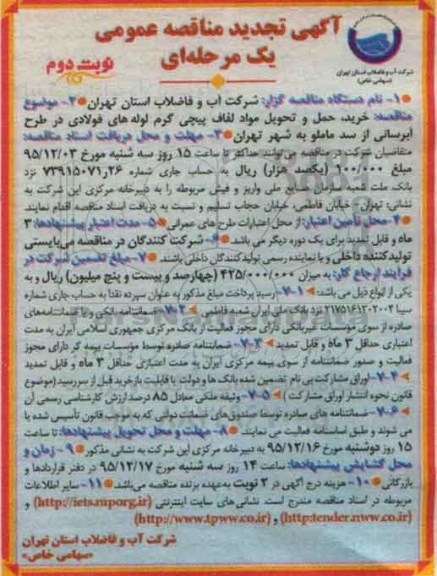 آگهی تجدید مناقصه عمومی
یک مرحله‌ای
نوبت دوم
شرکت آب و فاضلاب استان تهران
(سهامی خاص)
۱- نام دستگاه مناقصه گزار: شرکت آب و فاضلاب استان تهران ۲- موضوع
مناقصه: خرید، حمل و تحویل مواد لفاف پیچی گرم لوله های فولادی در طرح
آبرسانی از سد ماملو به شهر تهران ۳- مهلت و محل دریافت اسناد مناقصه:
متقاضیان شرکت در مناقصه می‌توانند حداکثر تا ساعت ۱۵ روز سه شنبه مورخ ۹۵/۱۲/۰۳
مبلغ ۱۰۰/۰۰۰ (یکصد هزار) ریال به حساب جاری شماره ۷۳۹۱۵۰۷۱/۲۶ نزد
بانک ملت شعبه سازمان صنایع ملی واریز و فیش مربوطه را به دبیرخانه مرکزی این شرکت به
نشانی: تهران - خیابان فاطمی، خیابان حجاب تسلیم و نسبت به دریافت اسناد مناقصه اقدام نمایند.
۴- محل تأمین اعتبار: از محل اعتبارات طرح های عمرانی ۵- مدت اعتبار پیشنهادها: ۳
ماه و قابل تمدید برای یک دوره دیگر می باشد. ۶- شرکت کنندگان در مناقصه می‌بایستی
تولیدکننده داخلی و یا نماینده رسمی تولیدکنندگان داخلی باشند. ۷- مبلغ تضمین شرکت در
فرآیند ارجاع کار: به میزان ۴۲۵/۰۰۰/۰۰۰ (چهارصد و بیست و پنج میلیون) ریال و به
یکی از انواع ذیل می باشد: ۱-۷- رسید پرداخت مبلغ مذکور به عنوان سپرده نقدا به حساب جاری شماره
سیبا ۲۱۷۵۱۶۱۲۰۲۰۰۲ نزد بانک ملی ایران شعبه فاطمی ۲-۷- ضمانتنامه بانکی و یا ضمانتنامه‌های
صادره از سوی مؤسسات غیربانکی دارای مجوز فعالیت از بانک مرکزی جمهوری اسلامی ایران به مدت
اعتباری حداقل ۳ ماه و قابل تمدید ۳-۷- ضمانتنامه صادره توسط مؤسسات بیمه گر دارای مجوز
فعالیت و صدور ضمانتنامه از سوی بیمه مرکزی ایران به مدت اعتباری حداقل ۳ ماه و قابل تمدید
۴-۷- اوراق مشارکت بی نام تضمین شده بانک ها و دولت با قابلیت بازخرید قبل از سررسید (موضوع
قانون نحوه انتشار اوراق مشارکت) ۵-۷- وثیقه ملکی معادل ۸۵ درصد ارزش کارشناسی رسمی آن
۶-۷- ضمانتنامه های صادره توسط صندوق‌های ضمانت دولتی که به موجب قانون تأسیس شده یا
می شوند و طبق اساسنامه فعالیت می نمایند. ۸- مهلت و محل تحویل پیشنهادها: تا ساعت
۱۵ روز دوشنبه مورخ ۹۵/۱۲/۱۶ به دبیرخانه مرکزی این شرکت به نشانی مذکور ۹- زمان و
محل گشایش پیشنهادها: ساعت ۱۴ روز سه شنبه مورخ ۹۵/۱۲/۱۷ در دفتر قراردادها و
بازرگانی ۱۰- هزینه درج آگهی در ۲ نوبت به عهده برنده مناقصه می‌باشد. ۱۱- سایر اطلاعات
مربوطه در اسناد مناقصه مندرج است. نشانی‌های سایت اینترنتی (http://iets.mporg.ir) و
(http:tender.nww.co.ir) و (http://www.tpww.co.ir)
شرکت آب و فاضلاب استان تهران
«سهامی خاص»